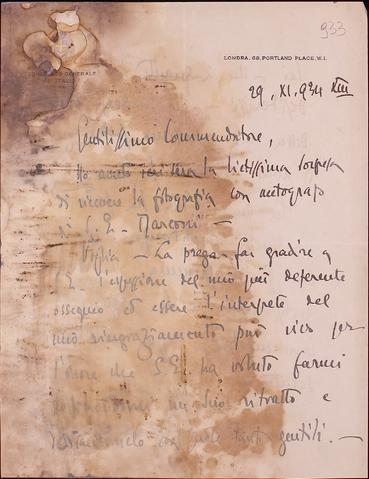 933
CONSOLATO GENERALE
LONDRA, 68, PORTLAND PLACE, W.1.
29, XI, 934 XIII
Gentilissimo Commendatore,
Ho avuto la lietissima sorpresa
di ricevere la fotografia con autografo
di S.E. Marconi —
Voglia — La prego far gradire a
S.E. l'espressione del mio più deferente
ossequio ed essere l'interprete del
mio ringraziamento più vivo per
l'onore che S.E. ha voluto farmi
un suo ritratto e
tanto gentili. —